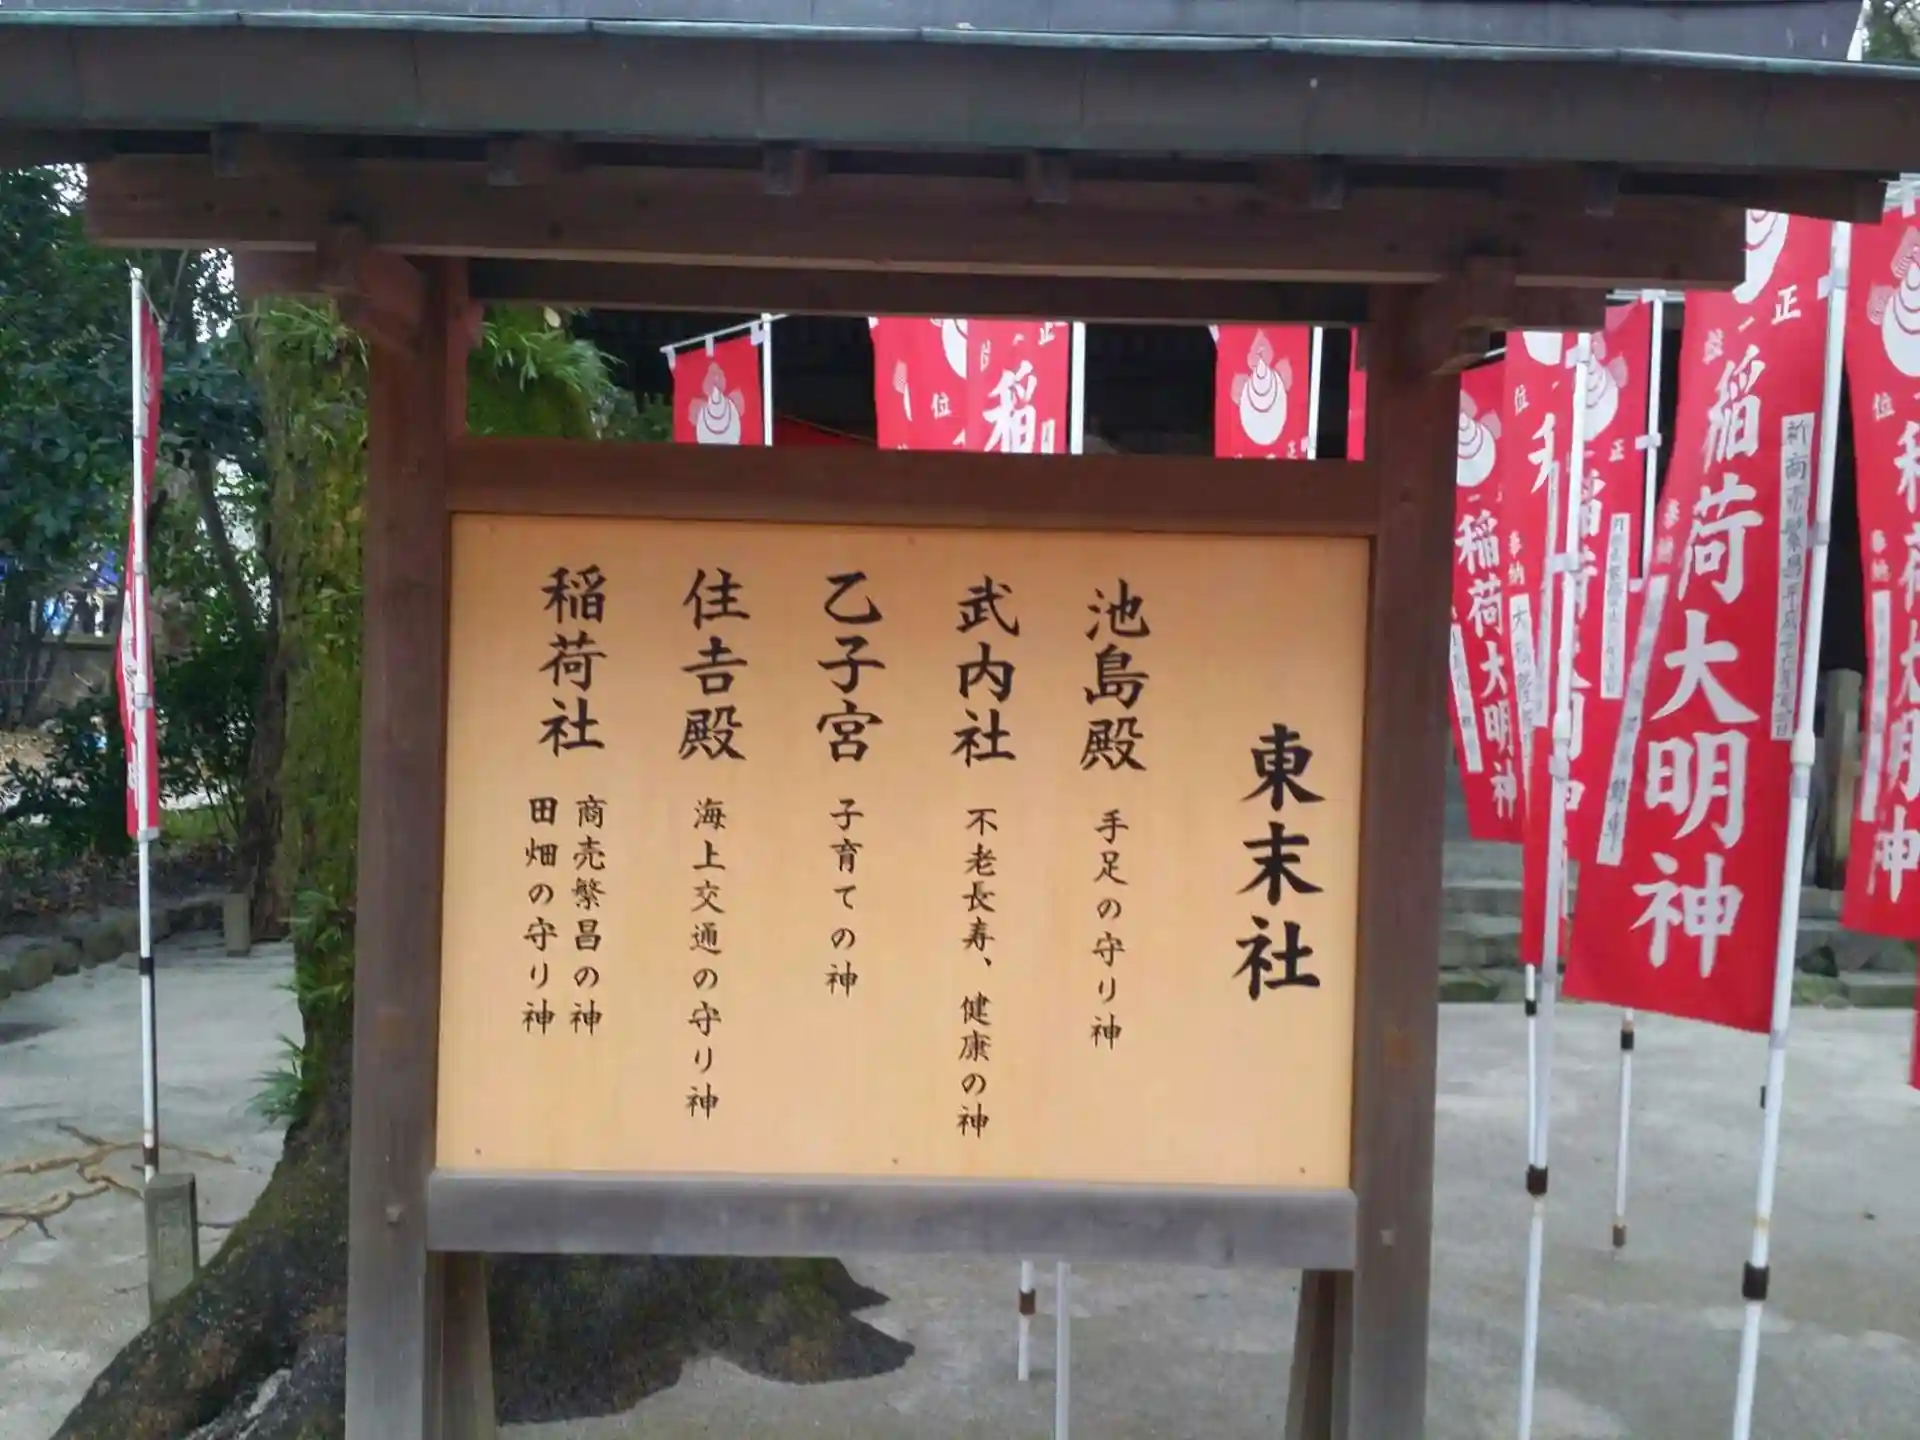 東末社
池島殿 手足の守り神
武内社 不老長寿、健康の神
乙子宮 子育ての神
住吉殿 海上交通の守り神
稲荷社 商売繁昌の神
田畑の守り神
正一位
稲荷大明神
奉納
稲荷大明神
奉納
稲
正
位